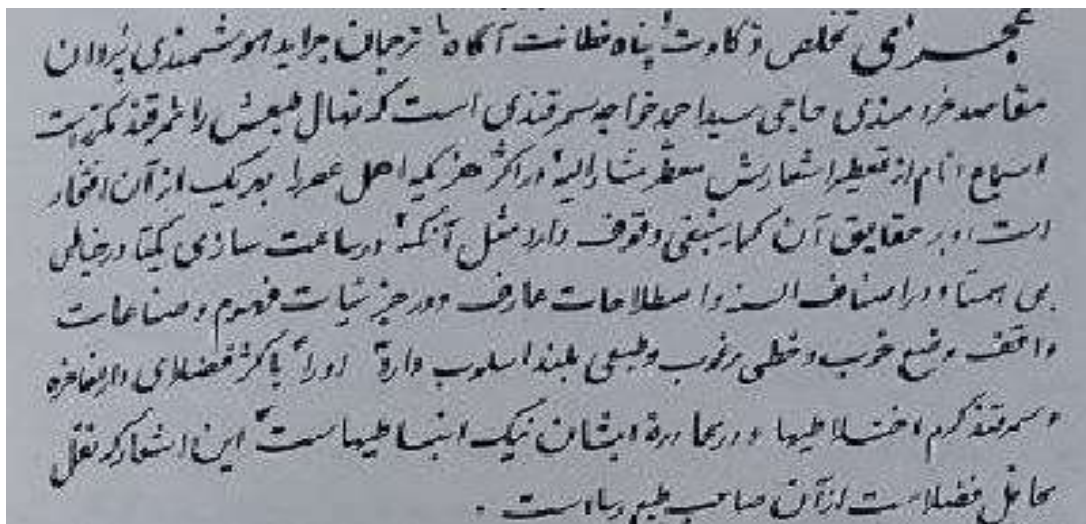 عجزی تخلص ذکاوت پناه فطانت آگاه ترجمان جراید هوشمندی نردبان
مقاصد خردمندی حاجی سید احمد خواجه سمرقندی است که نهال طبعش را ثمر قند مکرر است
اسماع انام از تقطیر اشعارش معطر مشارالیه در اکثر هنر که اهل عصر را بهر یک از آن افتخار
است او بر حقایق آن کما ینبغی وقوف دارد مثل آنکه در ساعت سازی یکتا در خیاطی
بی همتا و در اصناف السنه و اصطلاحات عارف و در جزئیات فهوم و صناعات
واقف وضع خوب و خطی مرغوب و طبعی بلند اسلوب دارد او را با اکثر فضلای دارالفاخره
و سمرقند گرم اختلاطیها و در محاوره ایشان نیک انبساطیهاست این اشعار که نقل
محافل فضلاست از آن صاحب طبع رساست .